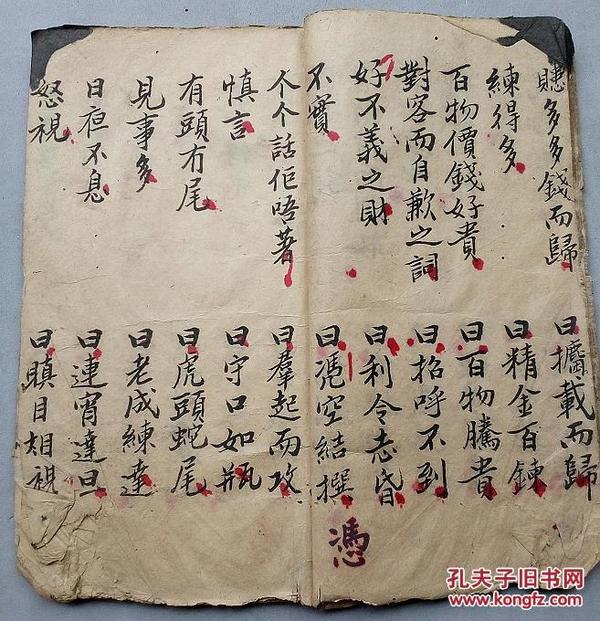 賺多多錢而歸
曰攟載而歸
練得多
曰精金百鍊
百物價錢好貴
曰百物騰貴
對客而自歉之詞
曰招呼不到
好不義之財
曰利令志昏
不實
曰憑空結撰
憑
个个話佢唔着
曰羣起而攻
慎言
曰守口如瓶
有頭冇尾
曰虎頭蛇尾
見事多
曰老成練達
日夜不息
曰連宵達旦
怒視
曰瞋目相視
孔夫子旧书网
www.kongfz.com